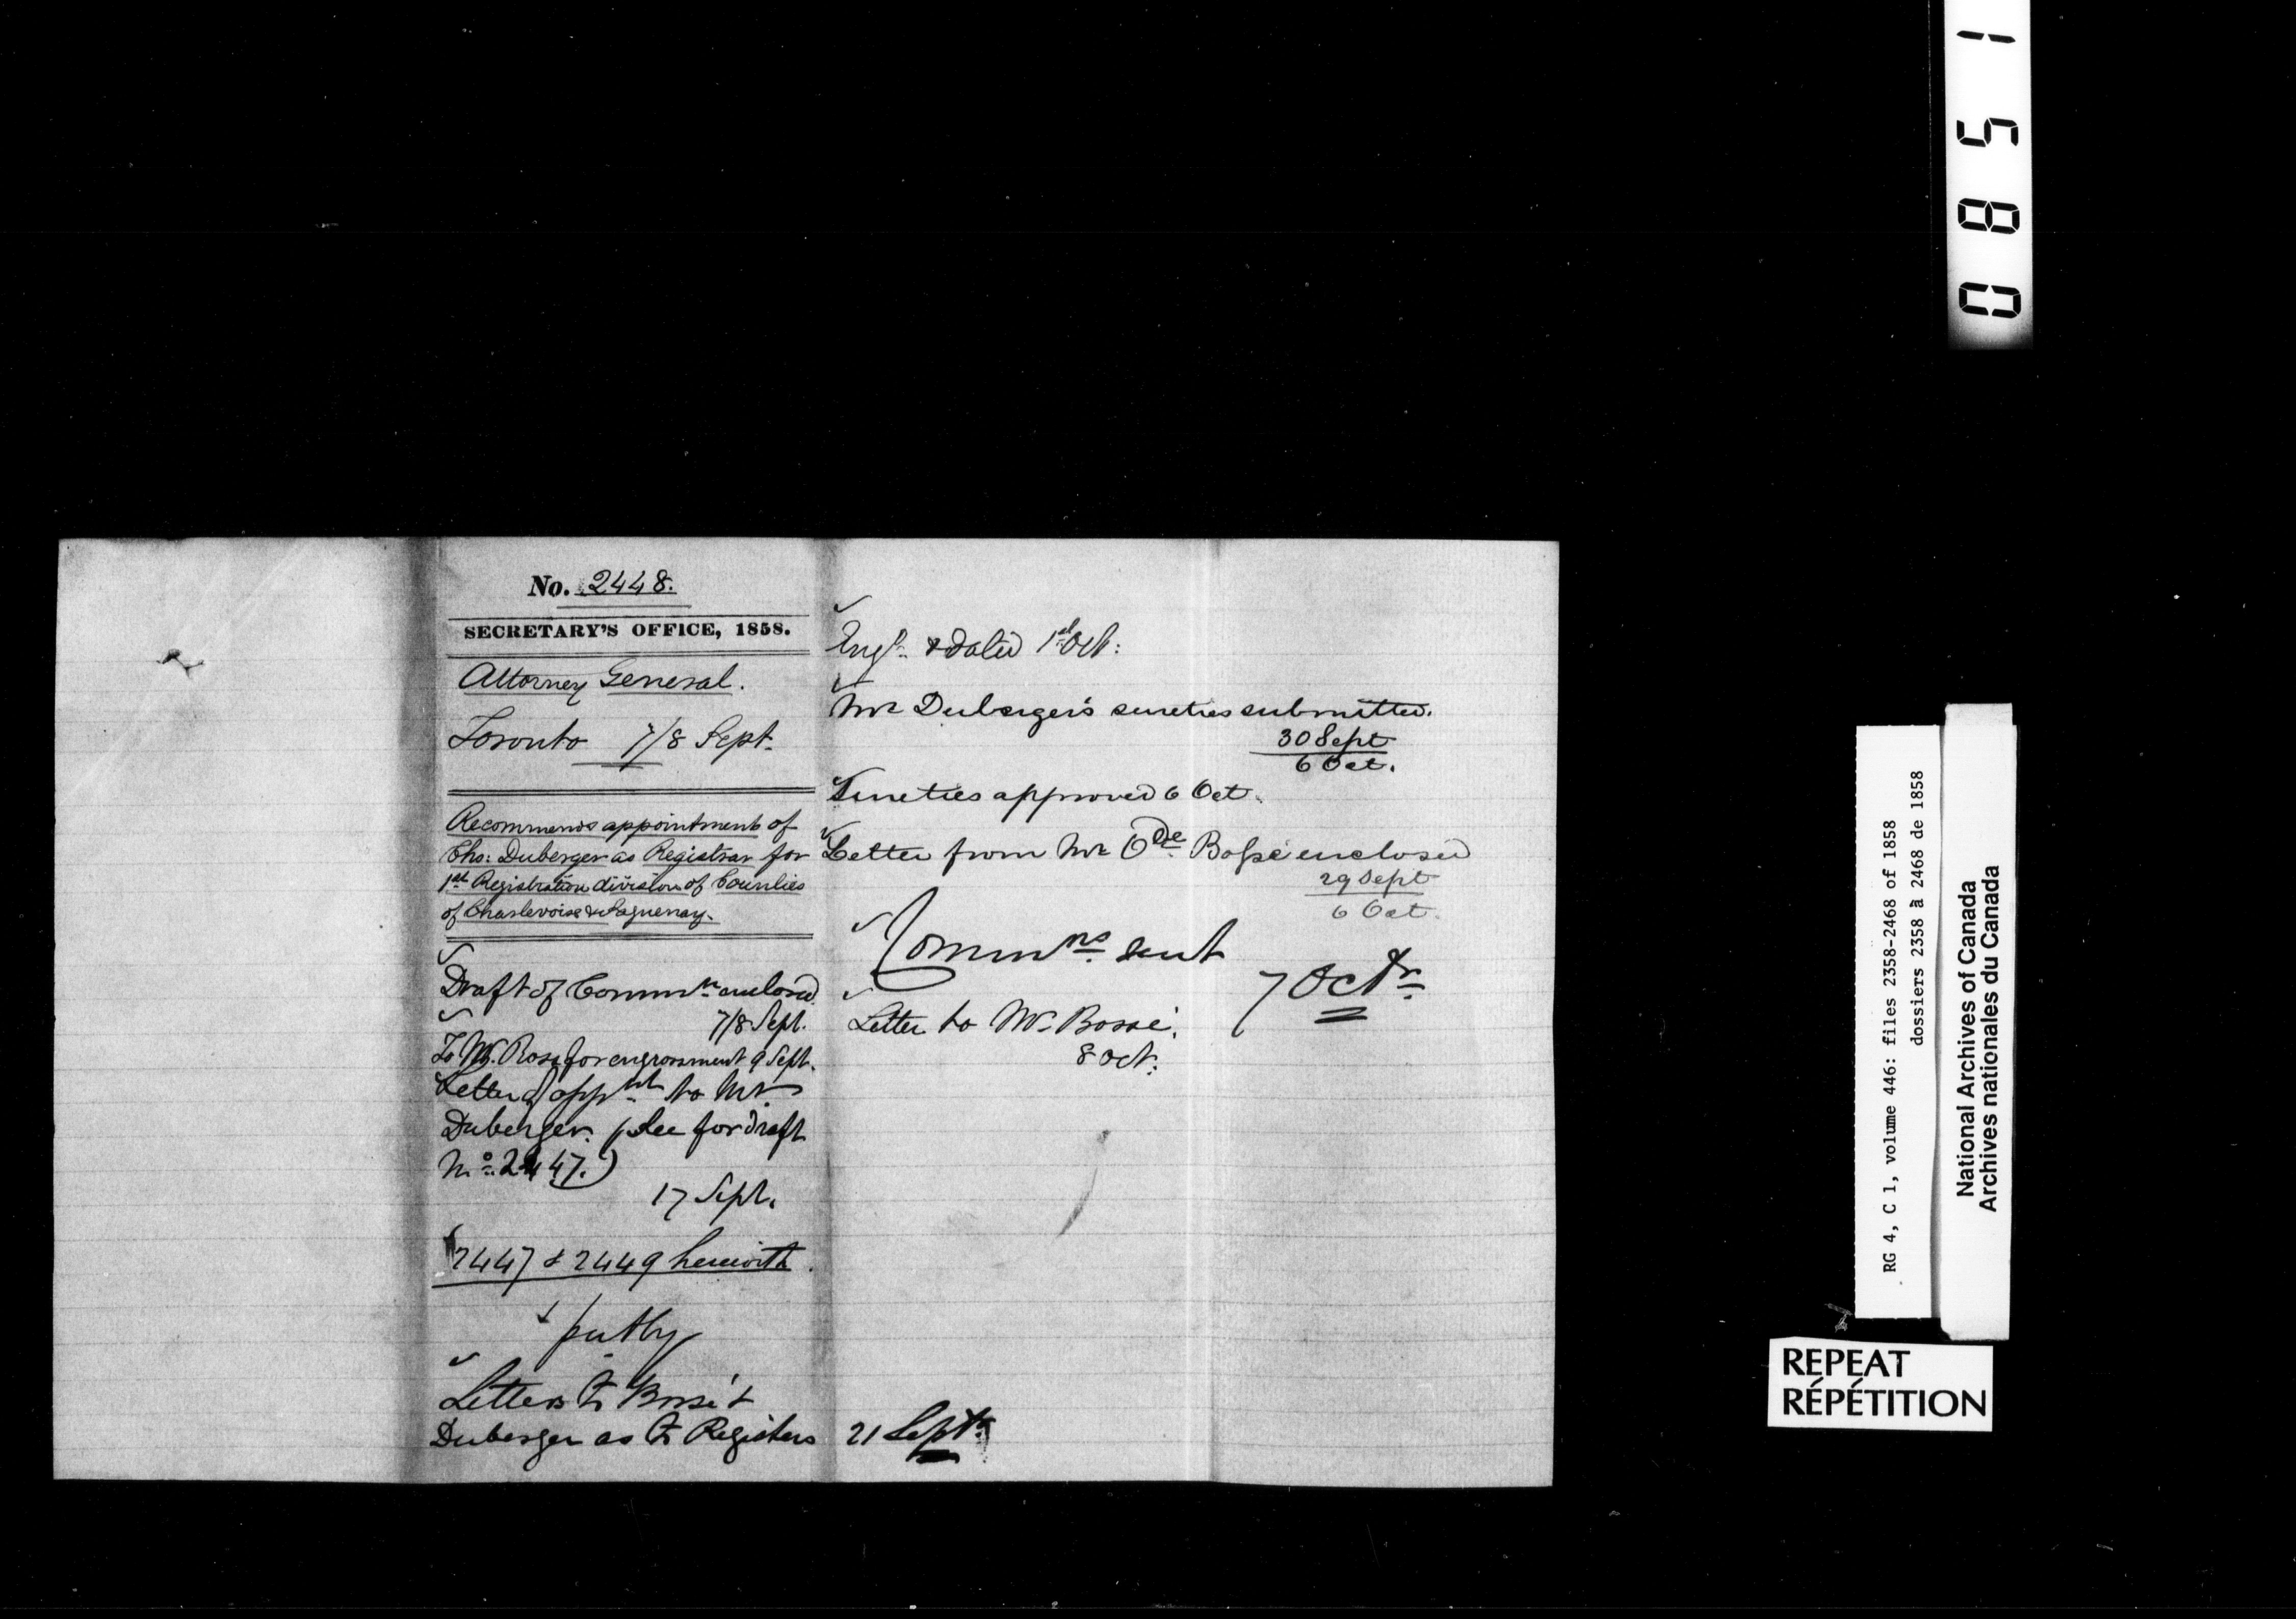 No. 2448.
SECRETARY'S OFFICE, 1858.
Attorney General.
Toronto 7/8 Sept.
Recommends appointment of
Chs: Duberger as Registrar for
1st Registration division of Counties
of Charlevoix & Saguenay.
Draft of Commn enclosed
7/8 Sept.
To Mr. Ross for engrossment 9 Sept.
Letter of appnt to Mr.
Duberger. (See for draft
No. 2447.)
17 Sept.
2447 & 2449 herewith.
put by
Letters to Bossé &
Duberger as to Registers 21 Septr.
Engd. & dated 1st Oct:
Mr Duberger's sureties submitted.
30 Sept
6 Oct.
Sureties approved 6 Oct.
Letter from Mr Ode Bossé enclosed
29 Sept
6 Oct.
Commns. sent
7 Octr.
Letter to Mr. Bossé.
8 Oct.
0851
RG 4, C 1, volume 446: files 2358-2468 of 1858
dossiers 2358 à 2468 de 1858
National Archives of Canada
Archives nationales du Canada
REPEAT
RÉPÉTITION